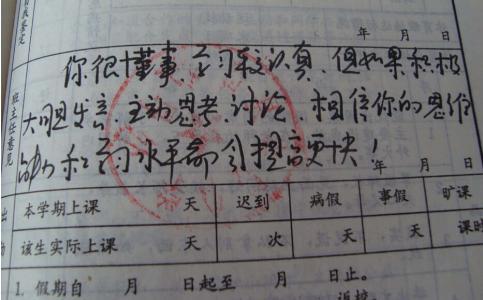 年 月 日
你很懂事,学习较认真,但如果积极
大胆发言,主动思考,讨论,相信你的思维
能力和学习水平都会提高更快!
年 月 日
班主任意见
本学期上课 天 迟到 病假 事假 旷课
该生实际上课 天 次 天 天 课时
1. 假期自 月 日起至 月 日止。